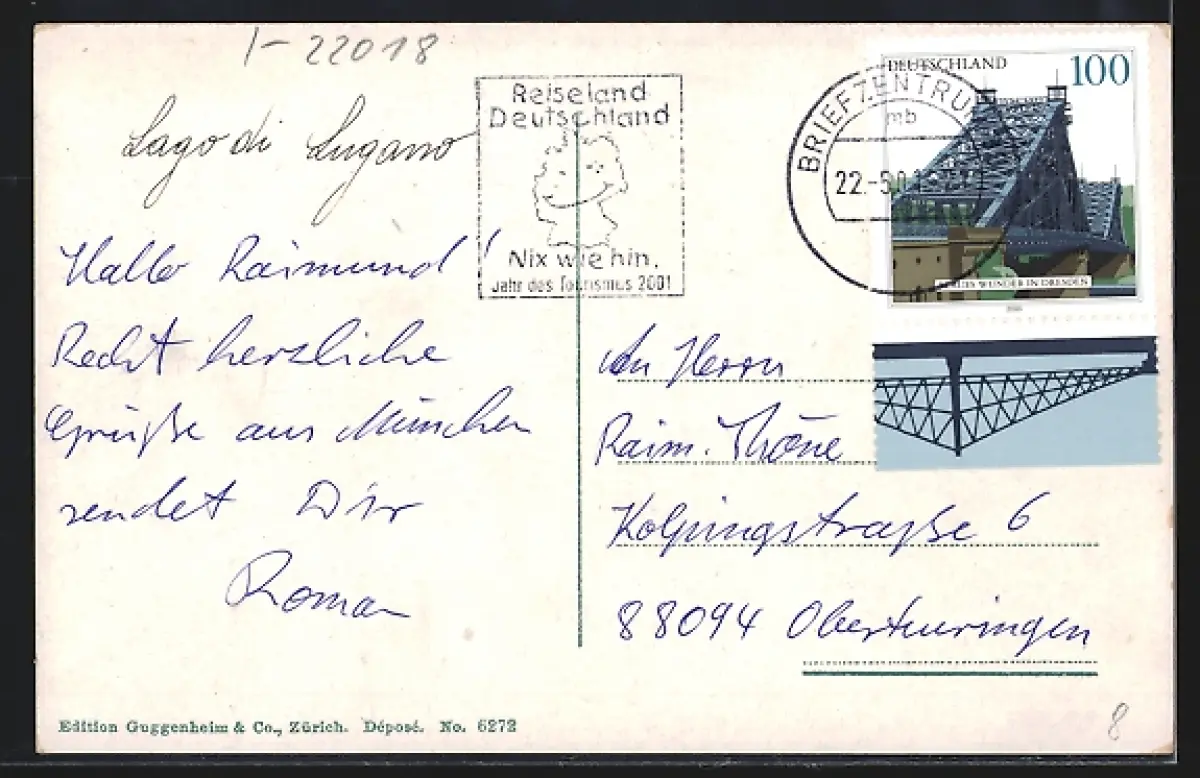 I-22018
Lago di Lugano
Hallo Raimund!
Recht herzliche
Grüße aus München
sendet Dir
Roman
Reiseland
Deutschland
Nix wie hin.
Jahr des Tourismus 2001
BRIEFZENTRU
mb
22.-5
DEUTSCHLAND
100
WUNDER IN DRESDEN
An Herrn
Raim. Thöne
Kolpingstraße 6
88094 Oberteuringen
Edition Guggenheim & Co., Zürich. Déposé. No. 6272
8